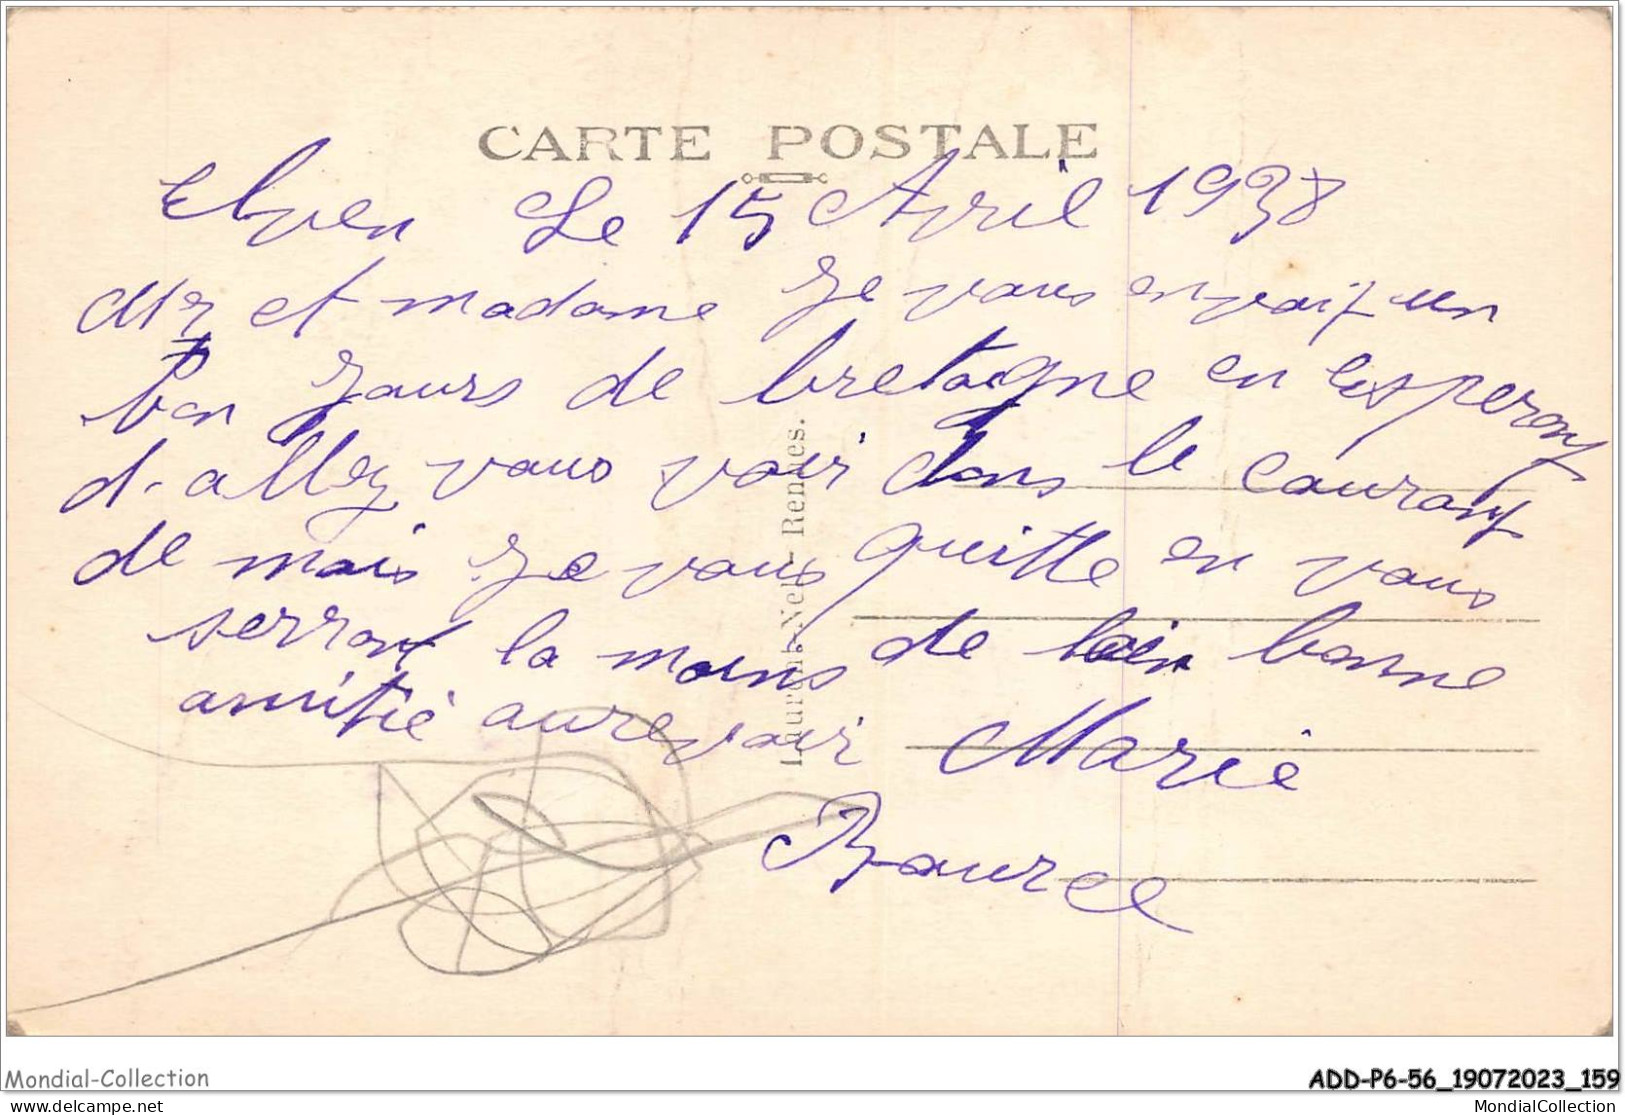 CARTE POSTALE
Elven Le 15 Avril 1938
Mr et madame Je vous envoit un
bon Jours de bretagne en esperont
d'allez vous voir dans le couront
de mais Je vous quitte en vous
serront la mains de loin bonne
amitié aurevoir Marie
Baurel
Laurent-Nel - Rennes.
Mondial-Collection
ADD-P6-56_19072023_159
delcampe.net
MondialCollection